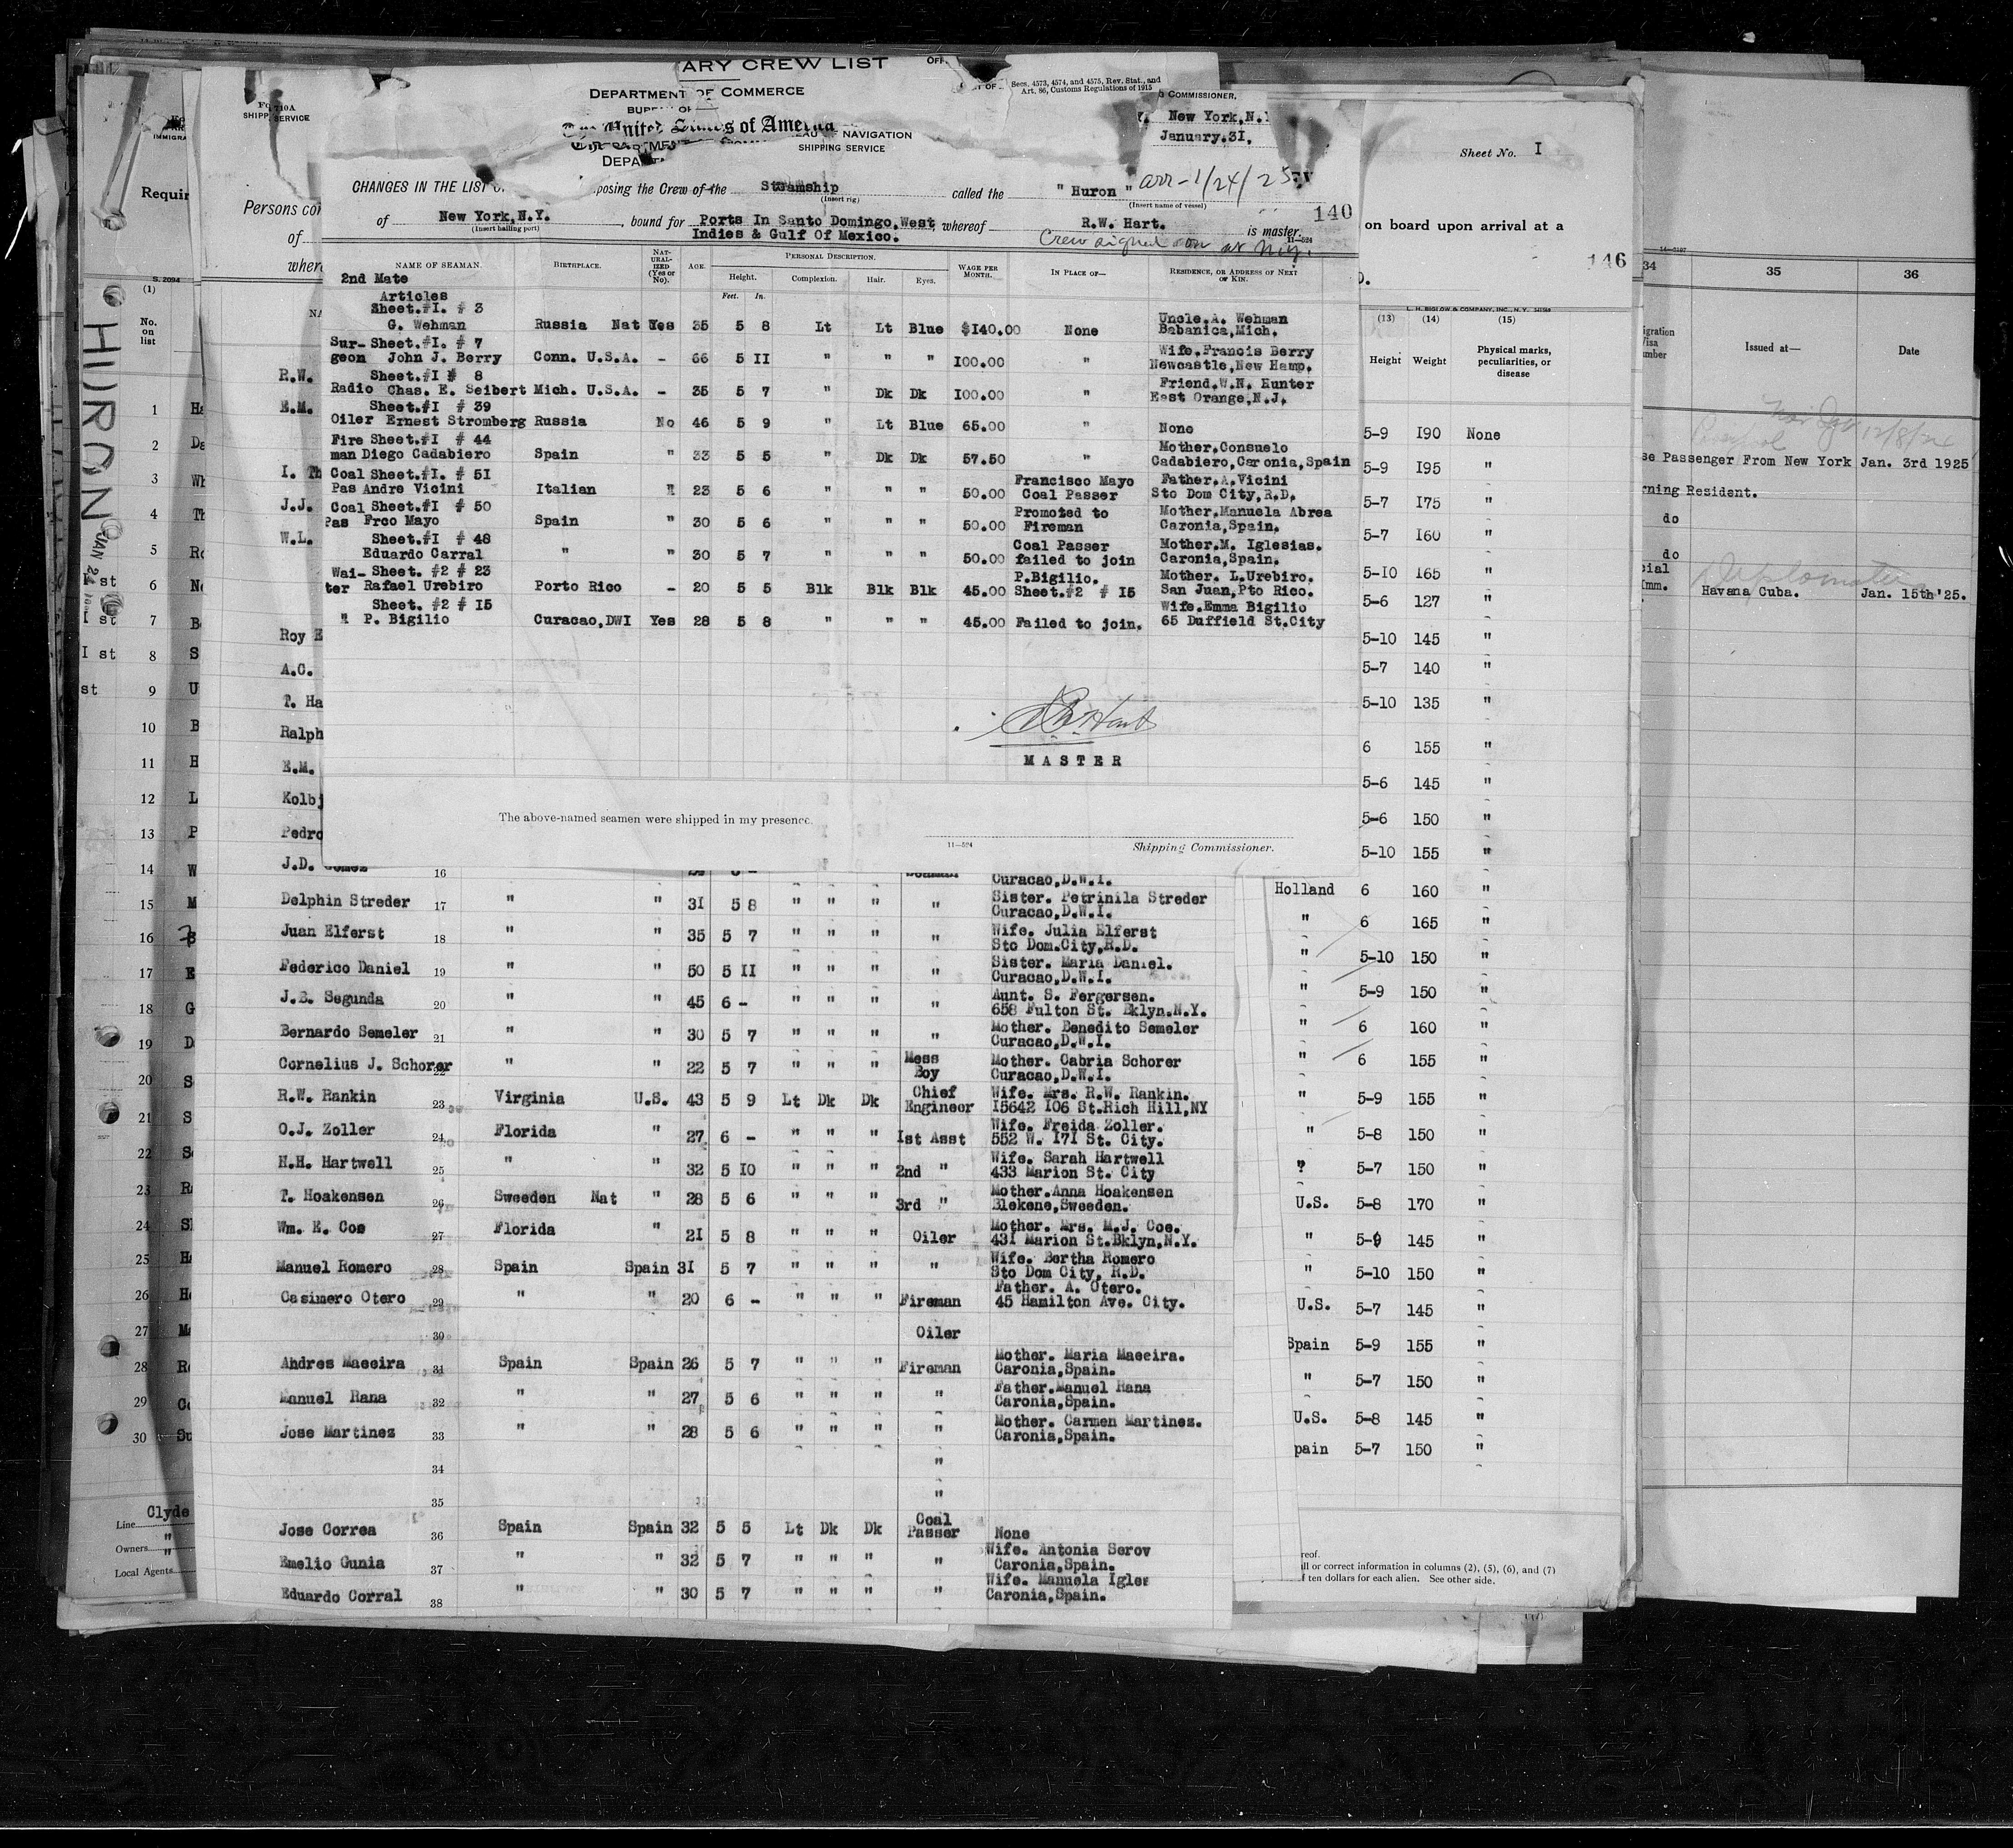 ARY CREW LIST
DEPARTMENT OF COMMERCE
Secs. 4573, 4574, and 4575, Rev. Stat., and
Art. 86, Customs Regulations of 1915
The United States of America
BUREAU OF NAVIGATION
SHIPPING SERVICE
COMMISSIONER,
New York, N.Y
January.3I,
CHANGES IN THE LIST OF posing the Crew of the Steamship called the " Huron " arr-1/24/25
(Insert rig) (Insert name of vessel)
140
of New York,N.Y. , bound for Ports In Santo Domingo,West whereof R.W. Hart. is master.
(Insert hailing port) Indies & Gulf Of Mexico. 11—524
Crew signed on at N.Y.
NAME OF SEAMAN. BIRTHPLACE. NATURALIZED (Yes or No). AGE. PERSONAL DESCRIPTION. WAGE PER MONTH. IN PLACE OF— RESIDENCE, OR ADDRESS OF NEXT OF KIN.
Height. Complexion. Hair. Eyes.
Feet. In.
2nd Mate
Articles
Sheet.#I. # 3 Uncle.A. Wehman
G. Wehman Russia Nat Yes 35 5 8 Lt Lt Blue $140.00 None Babanica,Mich.
Sur- Sheet.#I. # 7 Wife.Francis Berry
geon John J. Berry Conn. U.S.A. - 66 5 II " " " I00.00 " Newcastle,New Hamp.
Sheet.#I # 8 Friend.W.N. Hunter
Radio Chas. E. Seibert Mich. U.S.A. - 35 5 7 " Dk Dk I00.00 " East Orange,N.J.
Sheet.#I # 39
Oiler Ernest Stromberg Russia No 46 5 9 " Lt Blue 65.00 " None
Fire Sheet.#I # 44 Mother.Consuelo
man Diego Cadabiero Spain " 33 5 5 " Dk Dk 57.50 " Cadabiero,Caronia,Spain
Coal Sheet.#I. # 5I Francisco Mayo Father.A.Vicini
Pas Andre Vicini Italian " 23 5 6 " " " 50.00 Coal Passer Sto Dom City,R.D.
Coal Sheet.#I # 50 Promoted to Mother.Manuela Abrea
Pas Frco Mayo Spain " 30 5 6 " " " 50.00 Fireman Caronia,Spain.
Sheet.#I # 48 Coal Passer Mother.M. Iglesias.
Eduardo Carral " " 30 5 7 " " " 50.00 failed to join Caronia,Spain.
Wai- Sheet. #2 # 23 P.Bigilio. Mother. L.Urebiro.
ter Rafael Urebiro Porto Rico - 20 5 5 Blk Blk Blk 45.00 Sheet.#2 # I5 San Juan,Pto Rico.
Sheet. #2 # I5 Wife.Emma Bigilio
" P. Bigilio Curacao,DWI Yes 28 5 8 " " " 45.00 Failed to join. 65 Duffield St.City
R.W. Hart
MASTER
The above-named seamen were shipped in my presence.
11—524 Shipping Commissioner.
710A
SHIPP SERVICE
Persons co
of
wher
R.W.
E.M.
I. Th
J.J.
W.L.
Roy E
A.C.
T. Ha
Ralph
E.M.
Kolbj
Pedro
J.D. Gomez 16 Curacao,D.W.I.
Delphin Streder 17 " " 3I 5 8 " " " " Sister. Petrinila Streder
Curacao,D.W.I.
Juan Elferst 18 " " 35 5 7 " " " " Wife. Julia Elferst
Sto Dom.City,R.D.
Federico Daniel 19 " " 50 5 II " " " " Sister. Maria Daniel.
Curacao,D.W.I.
J.B. Segunda 20 " " 45 6 - " " " " Aunt. S. Fergersen.
658 Fulton St. Bklyn.N.Y.
Bernardo Semeler 21 " " 30 5 7 " " " " Mother. Benedito Semeler
Curacao,D.W.I.
Cornelius J. Schorer 22 " " 22 5 7 " " " Mess Boy Mother. Cabria Schorer
Curacao,D.W.I.
R.W. Rankin 23 Virginia U.S. 43 5 9 Lt Dk Dk Chief Engineer Wife. Mrs. R.W. Rankin.
I5642 I06 St.Rich Hill,NY
O.J. Zoller 24 Florida " 27 6 - " " " Ist Asst Wife. Freida Zoller.
552 W. I7I St. City.
H.H. Hartwell 25 " " 32 5 I0 " " " 2nd " Wife. Sarah Hartwell
433 Marion St. City
T. Hoakensen 26 Sweeden Nat " 28 5 6 " " " 3rd " Mother.Anna Hoakensen
Blekene,Sweeden.
Wm. E. Coe 27 Florida " 2I 5 8 " " " Oiler Mother. Mrs. M.J. Coe.
43I Marion St.Bklyn,N.Y.
Manuel Romero 28 Spain Spain 3I 5 7 " " " " Wife. Bertha Romero
Sto Dom City, R.D.
Casimero Otero 29 " " 20 6 - " " " Fireman Father. A. Otero.
45 Hamilton Ave. City.
30 Oiler
Andres Maceira 31 Spain Spain 26 5 7 " " " Fireman Mother. Maria Maceira.
Caronia,Spain.
Manuel Rana 32 " " 27 5 6 " " " " Father.Manuel Rana
Caronia,Spain.
Jose Martinez 33 " " 28 5 6 " " " " Mother. Carmen Martinez.
Caronia,Spain.
34 "
35 "
Jose Correa 36 Spain Spain 32 5 5 Lt Dk Dk Coal Passer None
Emelio Gunia 37 " " 32 5 7 " " " " Wife. Antonia Serov
Caronia,Spain.
Eduardo Corral 38 " " 30 5 7 " " " " Wife. Manuela Igles
Caronia,Spain.
HURON
JAN 24
Requir
S. 2094
(1)
No. on list
1 Ha
2 Da
3 Wh
4 Th
5 Ro
I st 6 No
I st 7 Be
I st 8 S
st 9 U
10 B
11 H
12 L
13 P
14 W
15 M
16
17 E
18 G
19 D
20 S
21 S
22 Se
23 Ra
24 Sl
25 Ha
26 He
27 Ma
28 Re
29 Co
30 Su
Line Clyde
Owners "
Local Agents "
Sheet No. I
on board upon arrival at a
146
L. H. BIGLOW & COMPANY, INC., N. Y.
(13) (14) (15)
Height Weight Physical marks, peculiarities, or disease
5-9 I90 None
5-9 I95 "
5-7 I75 "
5-7 I60 "
5-I0 I65 "
5-6 127 "
5-10 145 "
5-7 140 "
5-10 135 "
6 155 "
5-6 145 "
5-6 150 "
5-10 155 "
Holland 6 160 "
" 6 165 "
" 5-10 150 "
" 5-9 150 "
" 6 160 "
" 6 155 "
" 5-9 155 "
" 5-8 150 "
" 5-7 150 "
U.S. 5-8 170 "
" 5-9 145 "
" 5-10 150 "
U.S. 5-7 145 "
Spain 5-9 155 "
" 5-7 150 "
U.S. 5-8 145 "
pain 5-7 150 "
reof.
ll or correct information in columns (2), (5), (6), and (7)
f ten dollars for each alien. See other side.
34 35 36
igration Visa umber Issued at— Date
12/8/24
se Passenger From New York Jan. 3rd 1925
rning Resident.
do
do
cial
Imm. Diplomatic
Havana Cuba. Jan. 15th'25.